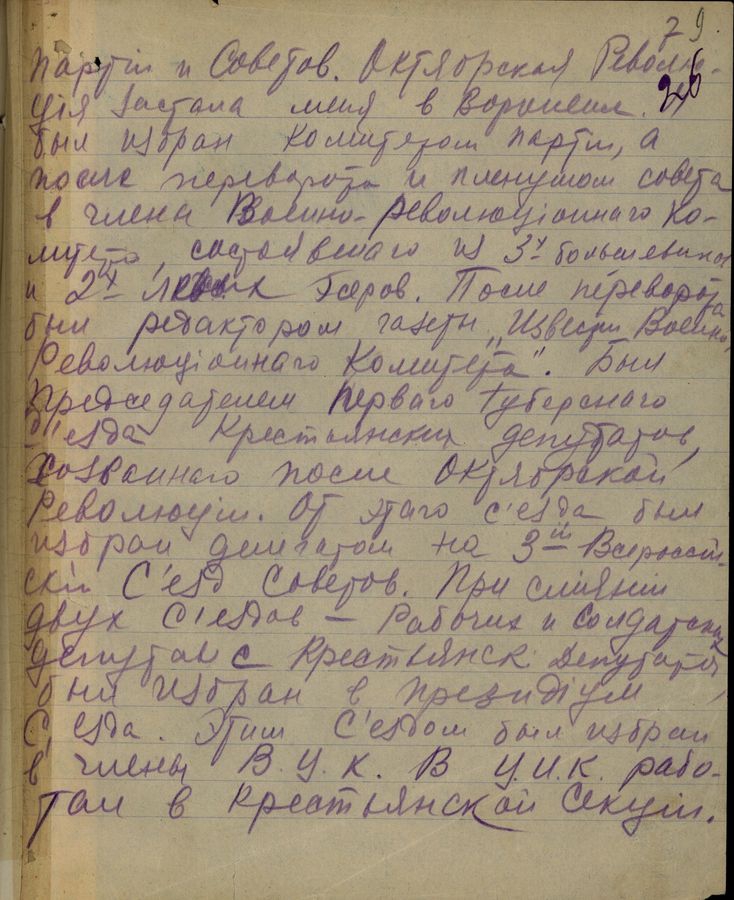 79
26
партіи и Советов. Октябрская Револю-
ція застала меня в Воронеже.
был избран комитетом партіи, а
после переворота и пленумом совета
в члены Военно-Революціоннаго Ко-
митета, состоявшаго из 3х большевиков
и 2х левых Эсеров. После переворота
был редактором газеты „Известія Военно-
Революціоннаго Комитета". Был
Председателем Перваго Губернскаго
С'езда Крестьянских депутатов,
созваннаго после Октябрской
Революціи. От этаго с'езда был
избран делегатом на 3й Всеросій-
скій С'езд Советов. При сліяніи
двух С'ездов — Рабочих и Солдатских
депутатов с Крестьянск. Депутатов,
был избран в президіум
С'езда. Этим С'ездом был избран
в члены В.Ц.К. В Ц.И.К. рабо-
тал в Крестьянской Секціи.